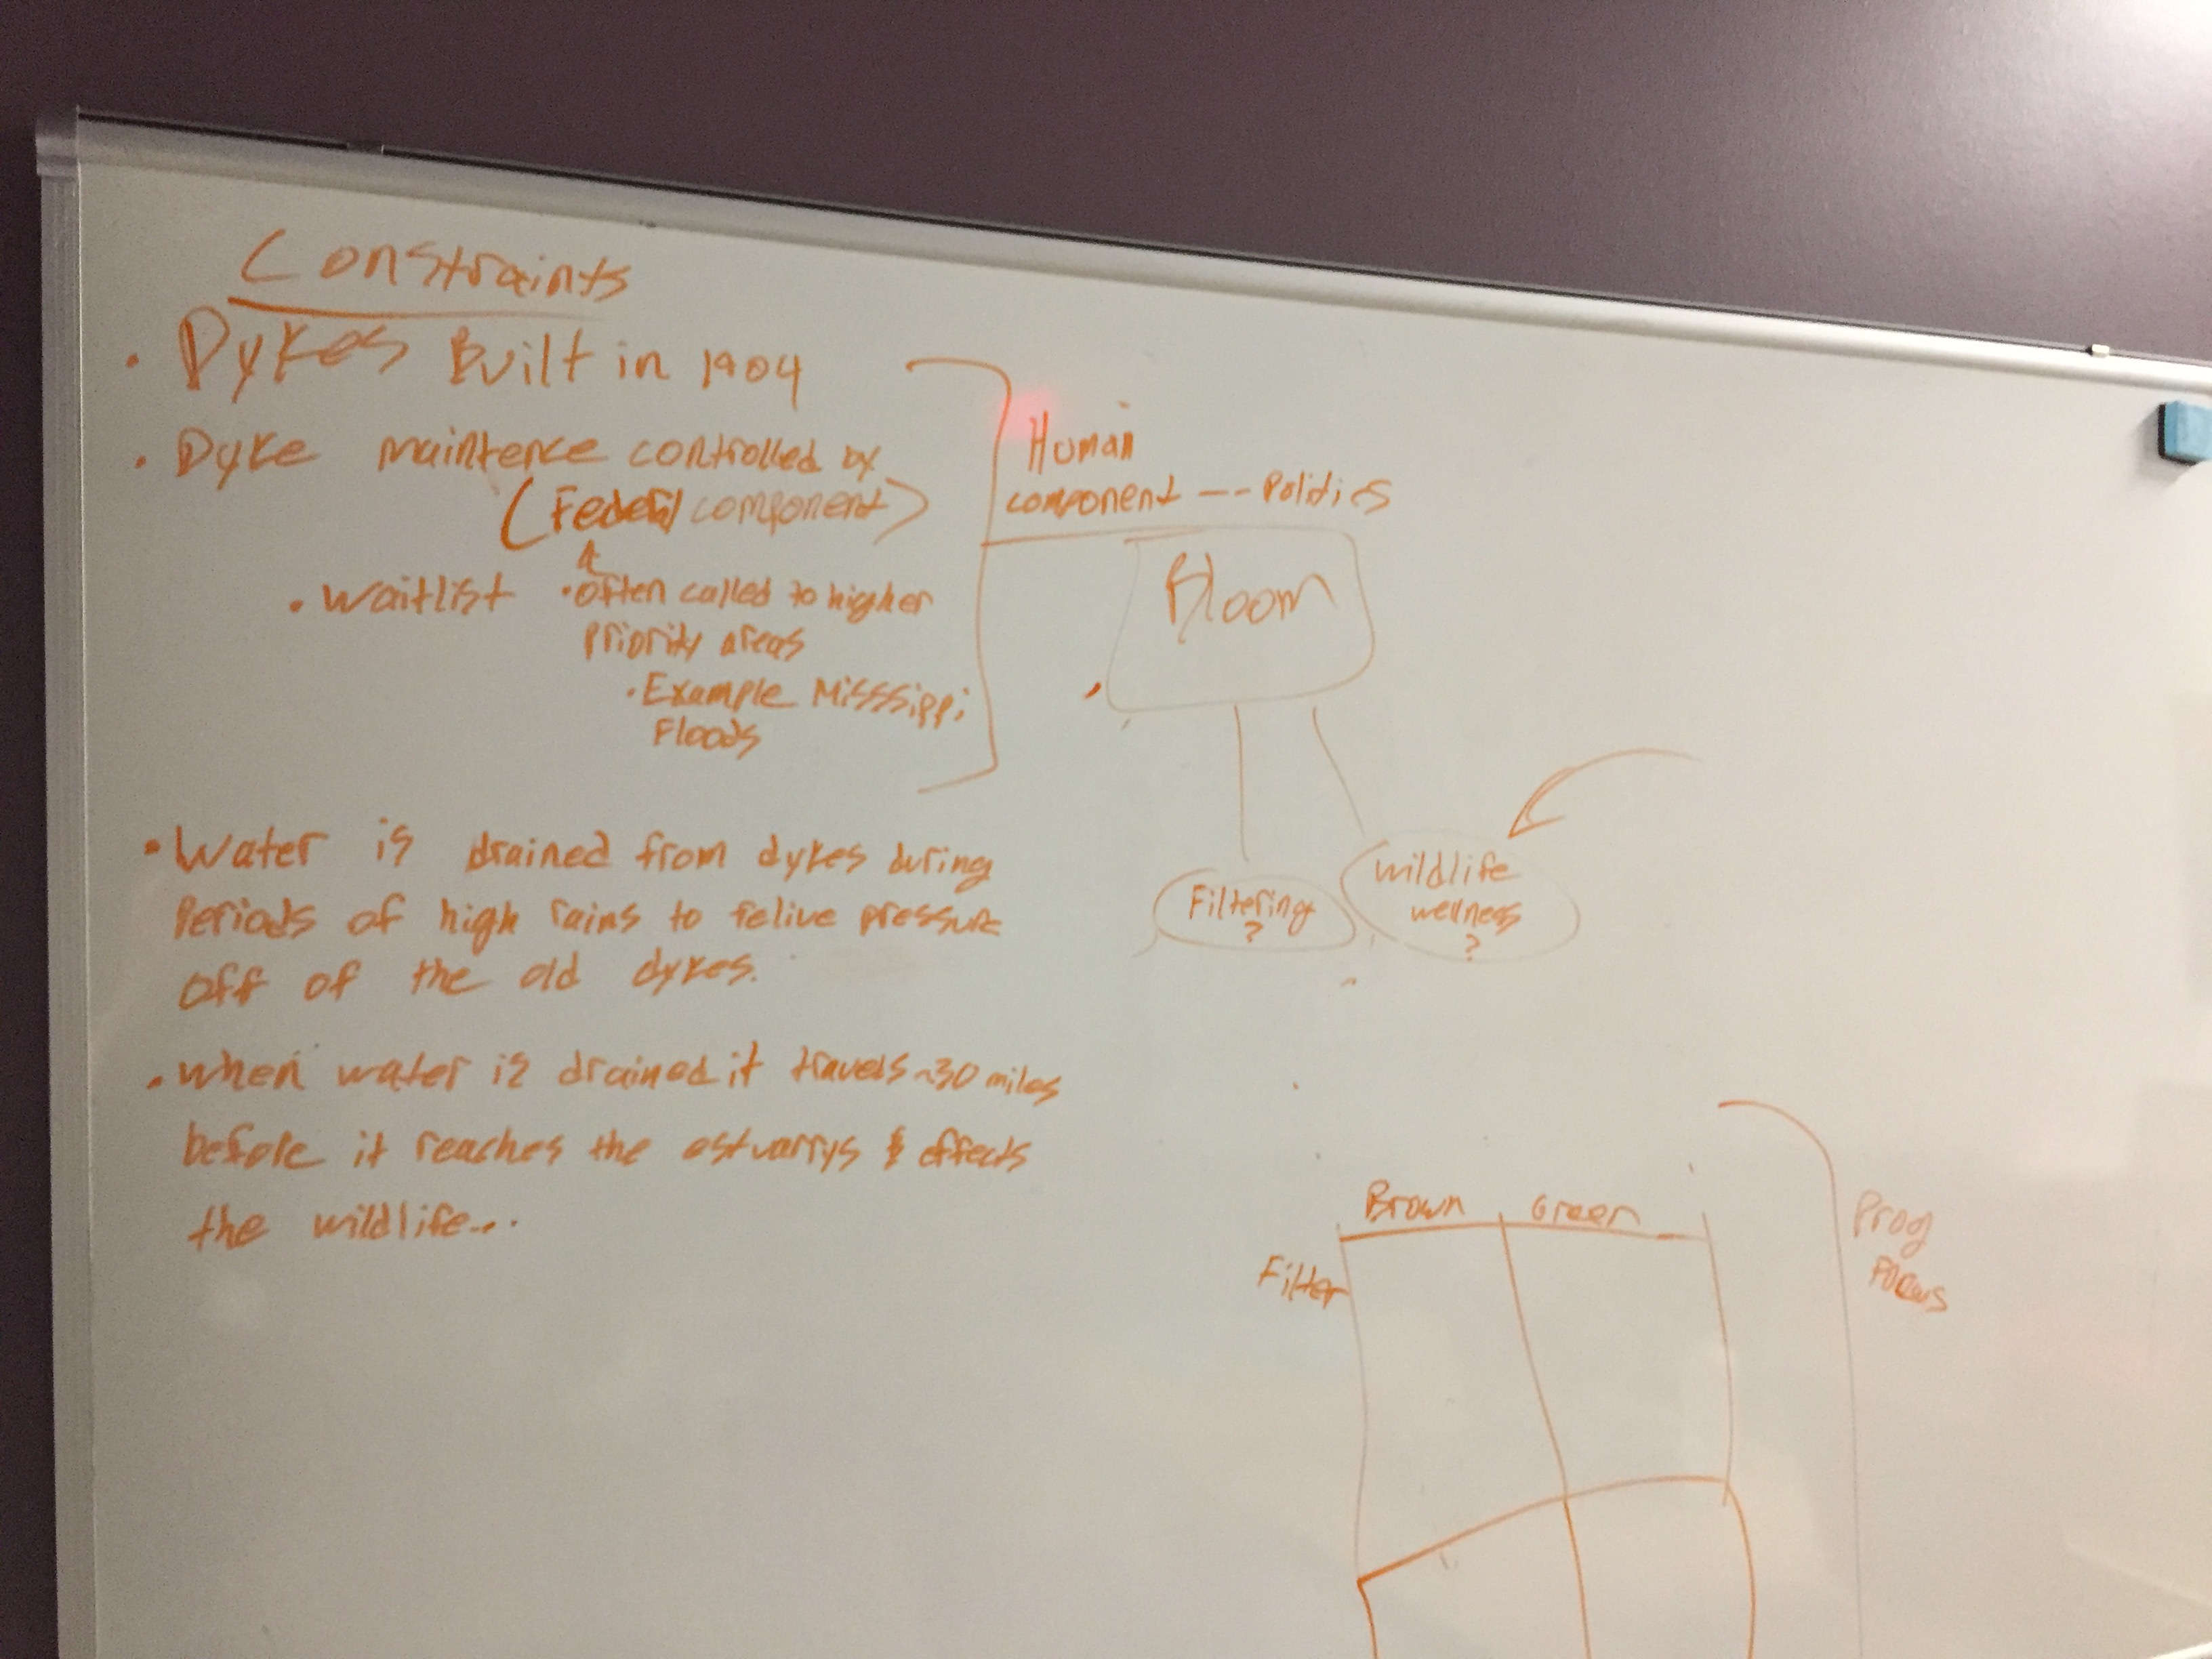 Constraints
• Dykes Built in 1904
• Dyke maintence controlled by
(Federal component)
• Waitlist
• Often called to higher
Priority areas
• Example Misssippi
Floods
Human
component -- Politics
Bloom
Filtering
?
Wildlife
wellness
?
• Water is drained from dykes during
Periods of high rains to relive pressure
off of the old dykes.
• When water is drained it travels ~30 miles
before it reaches the estuarrys & effects
the wildlife...
Brown Green
Filter
Prog